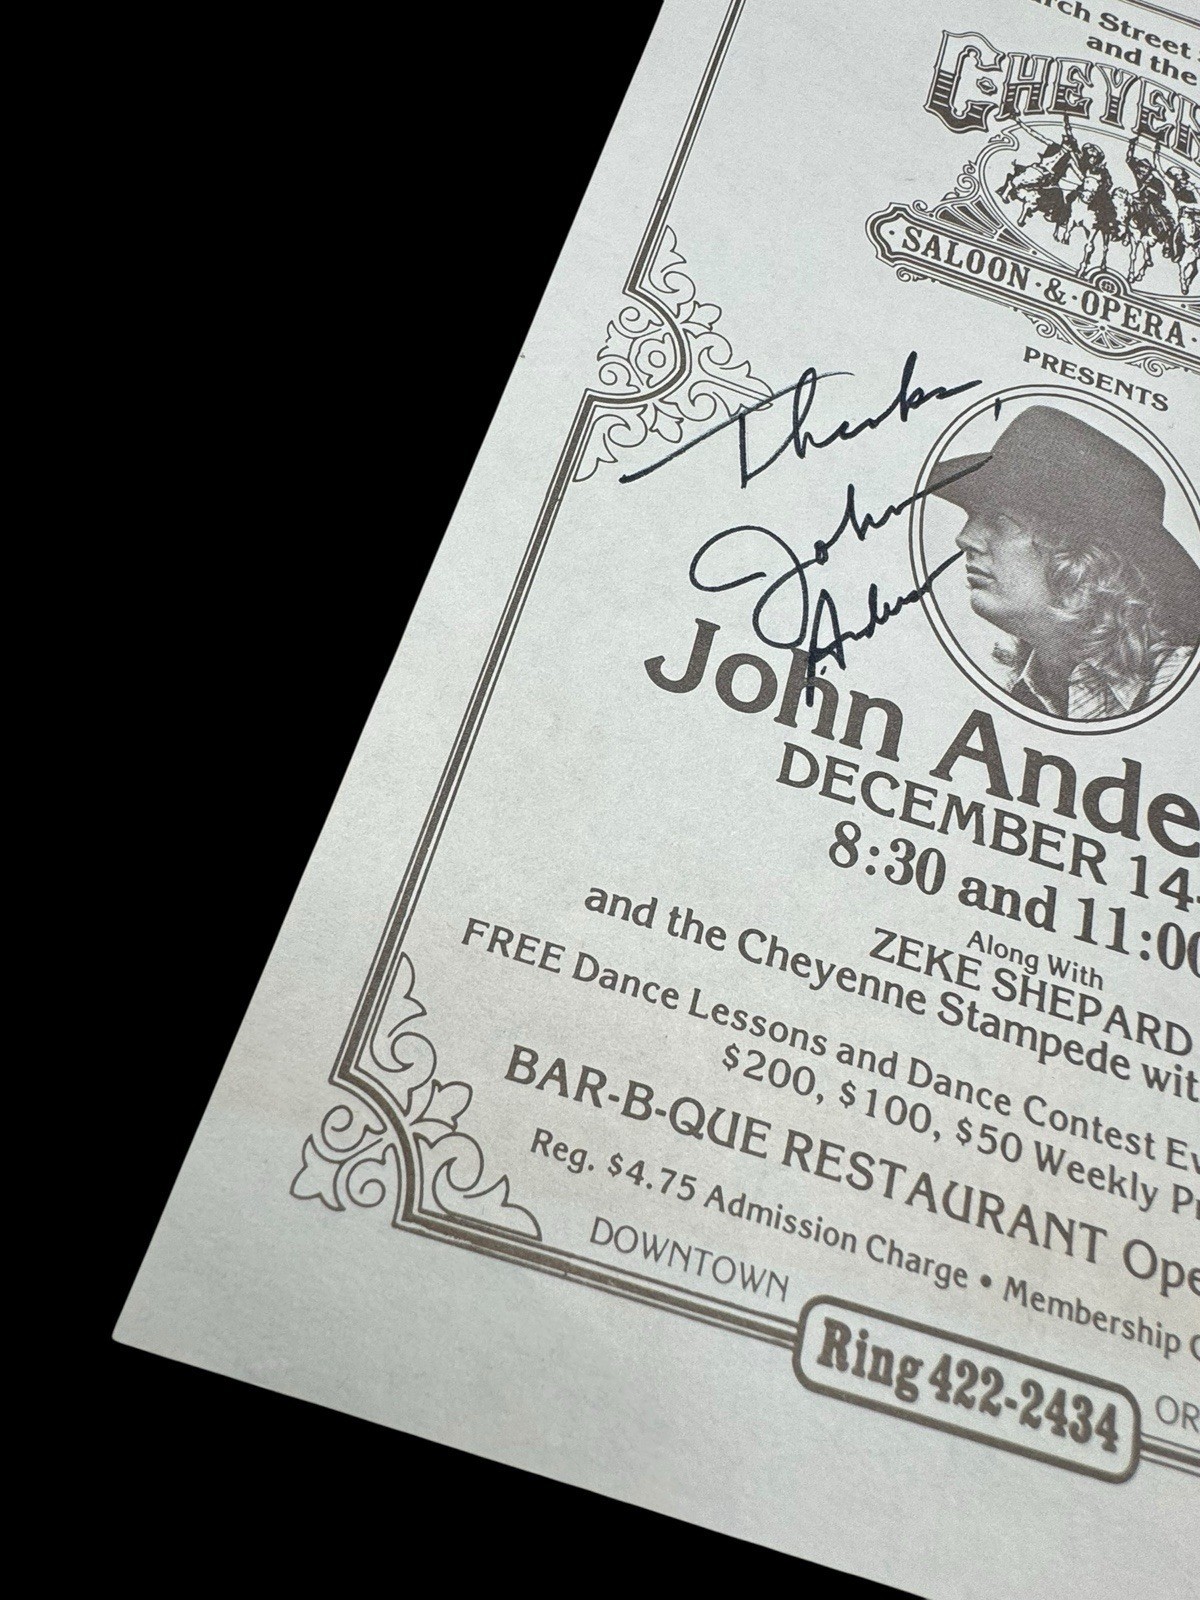 Street
and the
CHEYEN
SALOON & OPERA
PRESENTS
Thanks,
John
Anderson
John Ande
DECEMBER 14
8:30 and 11:00
Along With
ZEKE SHEPARD
and the Cheyenne Stampede wit
FREE Dance Lessons and Dance Contest Ev
$200, $100, $50 Weekly P
BAR-B-QUE RESTAURANT Ope
Reg. $4.75 Admission Charge • Membership
DOWNTOWN
Ring 422-2434
OR